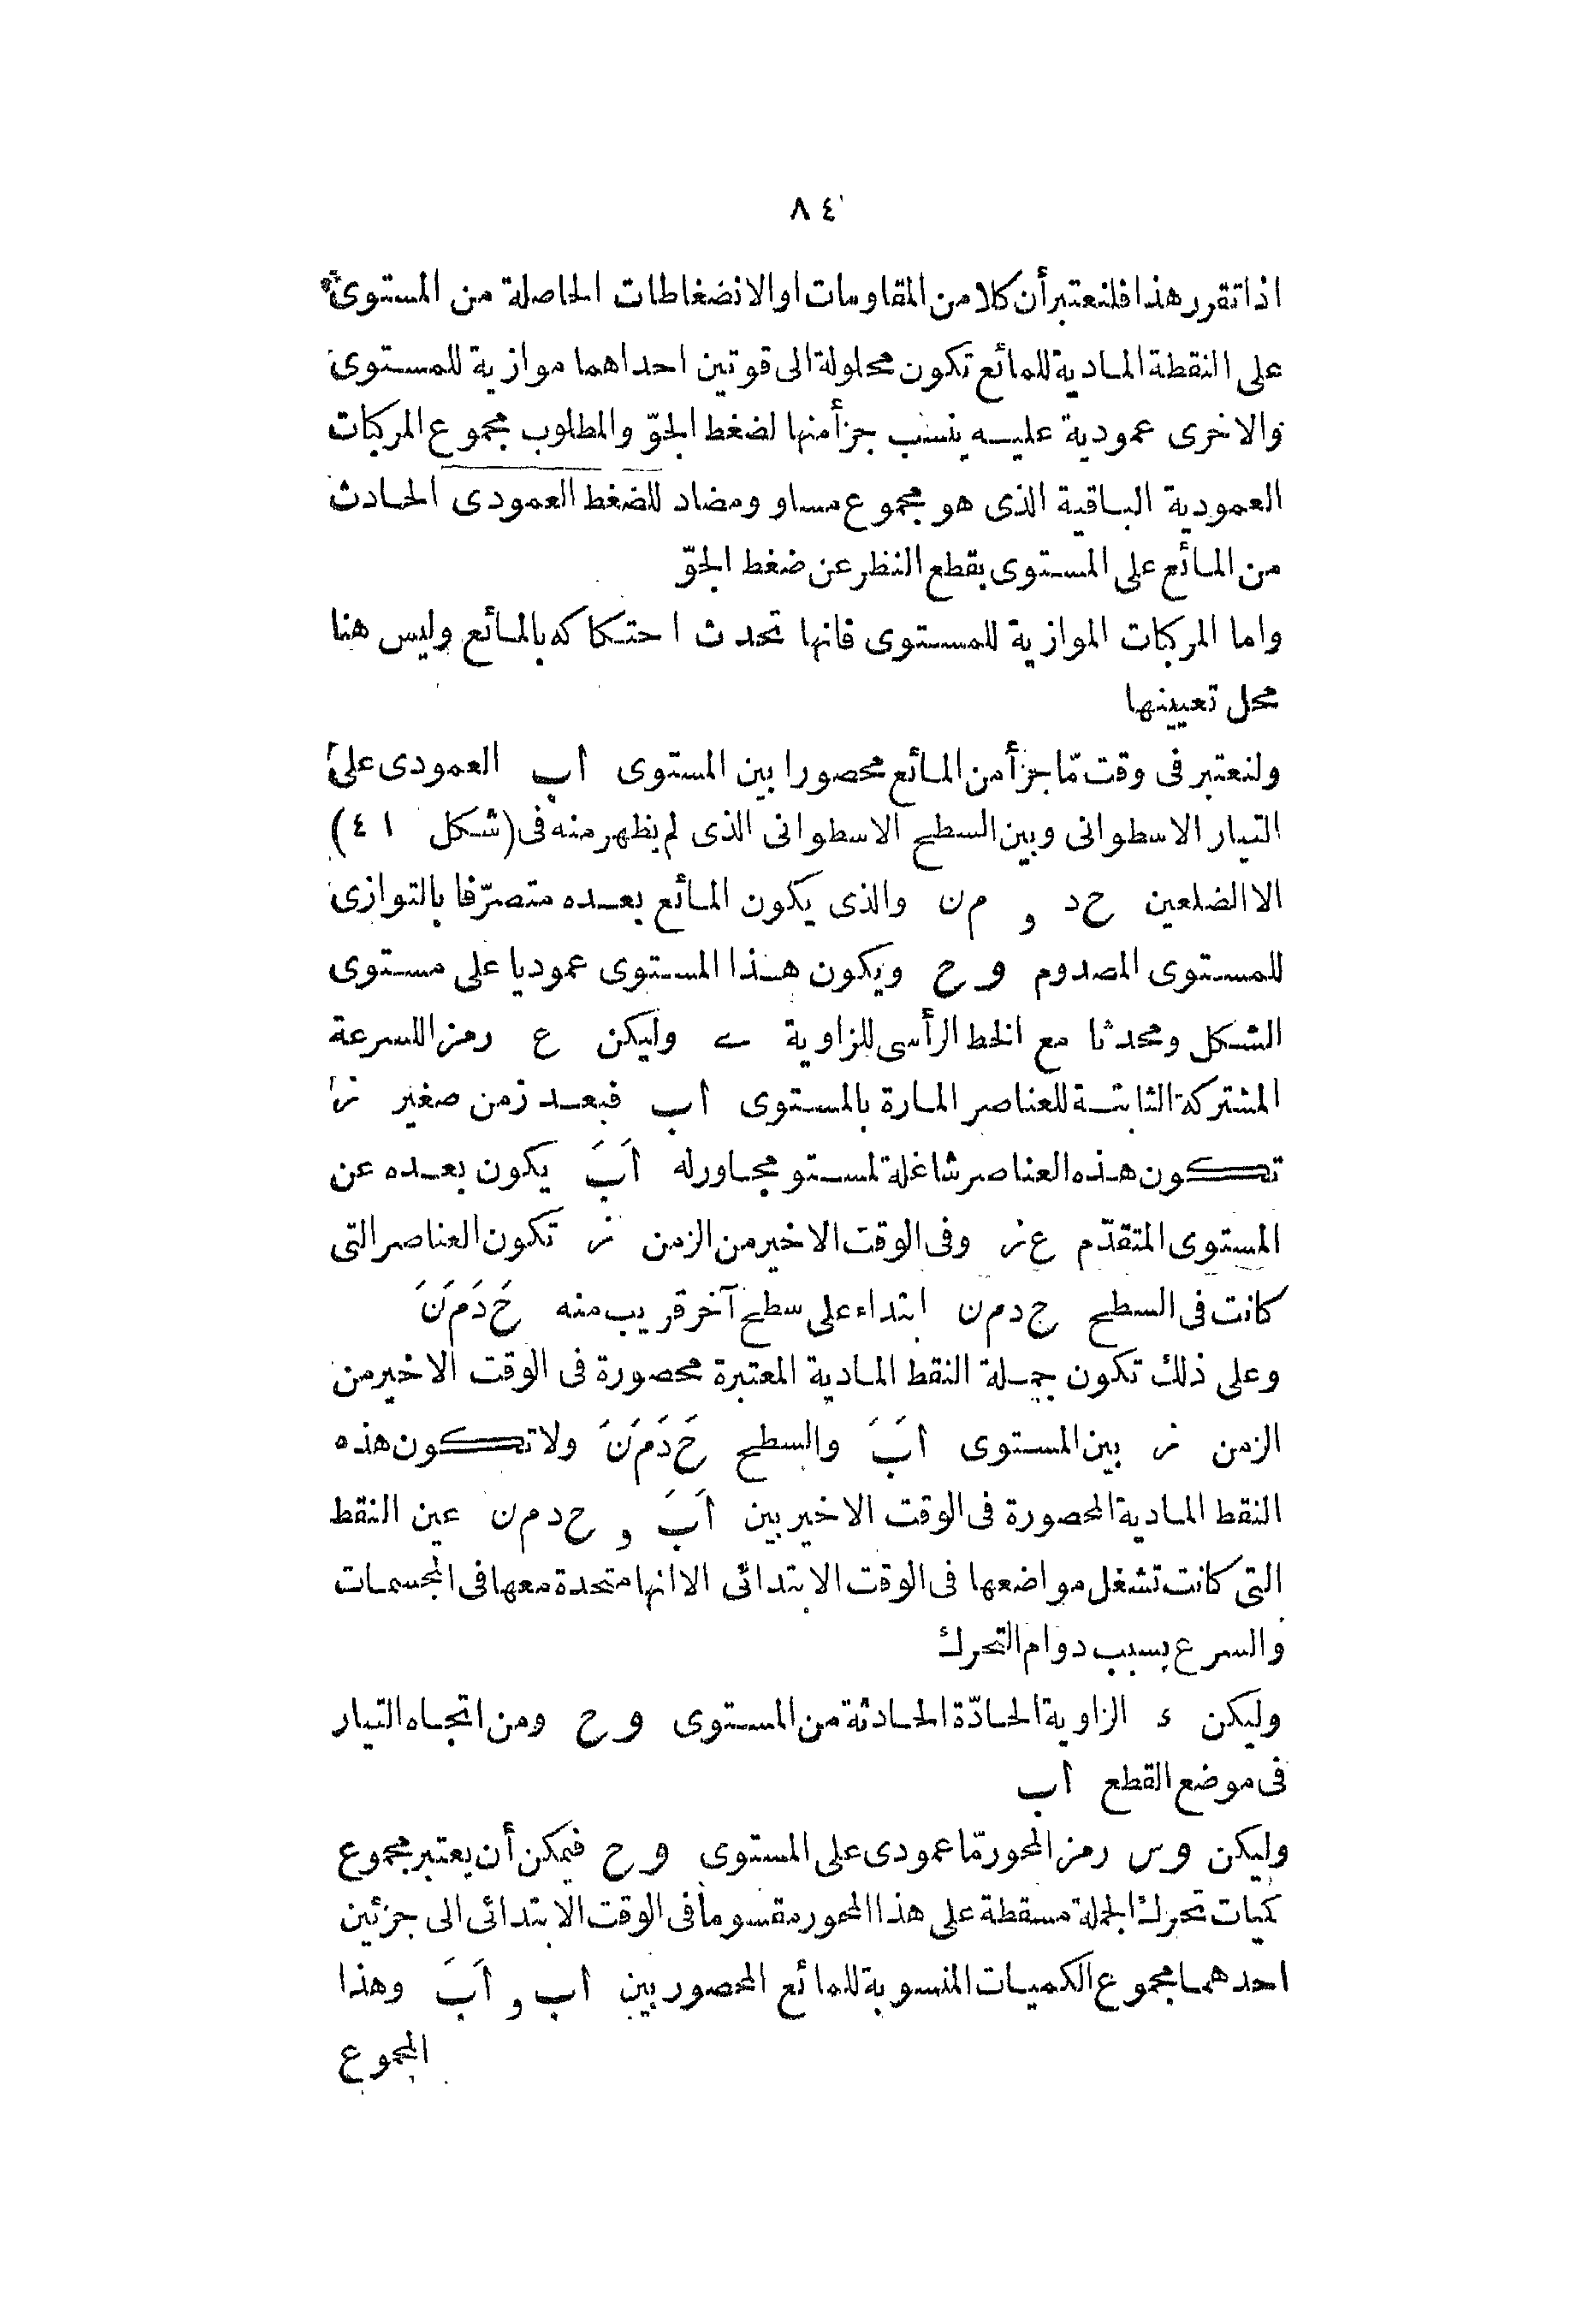 ٨٤
اذا تقرر هذا فلنعتبر أن كلا من المقاومات او الانضغاطات الحاصلة من المستوى
على النقطة المادية للمائع تكون محلولة الى قوتين احداهما موازية للمستوى
والاخرى عمودية عليه ينسب جزأ منها لضغط الجوّ والمطلوب مجموع المركبات
العمودية الباقية الذى هو مجموع مساو ومضاد للضغط العمودى الحادث
من المائع على المستوى بقطع النظر عن ضغط الجوّ
واما المركبات الموازية للمستوى فانها تحدث احتكاكه بالمائع وليس هنا
محل تعيينها
ولنعتبر فى وقت مّا جزأ من المائع محصورا بين المستوى أب العمودى على
التيار الاسطوانى وبين السطح الاسطوانى الذى لم يظهر منه فى (شكل ٤١)
الا الضلعين حد و من والذى يكون المائع بعده متصرّفا بالتوازى
للمستوى المصدوم وح ويكون هذا المستوى عموديا على مستوى
الشكل ومحدثا مع الخط الرأسى للزاوية ے وليكن ع رمز اللسرعة
المشتركة الثابتة للعناصر المارة بالمستوى أب فبعد زمن صغير ز
تكون هذه العناصر شاغلة لمستو مجاور له أَبَ يكون بعده عن
المستوى المتقدّم ع ز وفى الوقت الاخير من الزمن ز تكون العناصر التى
كانت فى السطح ح د م ن ابتداء على سطح آخر قريب منه حَ دَ مَ نَ
وعلى ذلك تكون جملة النقط المادية المعتبرة محصورة فى الوقت الاخير من
الزمن ز بين المستوى أَبَ والسطح حَ دَ مَ نَ ولا تكون هذه
النقط المادية المحصورة فى الوقت الاخير بين أَبَ و ح د م ن عين النقط
التى كانت تشغل مواضعها فى الوقت الابتدائى الا انها متحدة معها فى المجسمات
والسرع بسبب دوام التحرك
وليكن ء الزاوية الحادّة الحادثة من المستوى وح ومن اتجاه التيار
فى موضع القطع أب
وليكن وس رمز المحور مّا عمودى على المستوى وح فيمكن أن يعتبر مجموع
كميات تحرك الجملة مسقطة على هذا المحور مقسوما فى الوقت الابتدائى الى جزئين
احدهما مجموع الكميات المنسوبة للمائع المحصور بين أب و أَبَ وهذا
المجموع